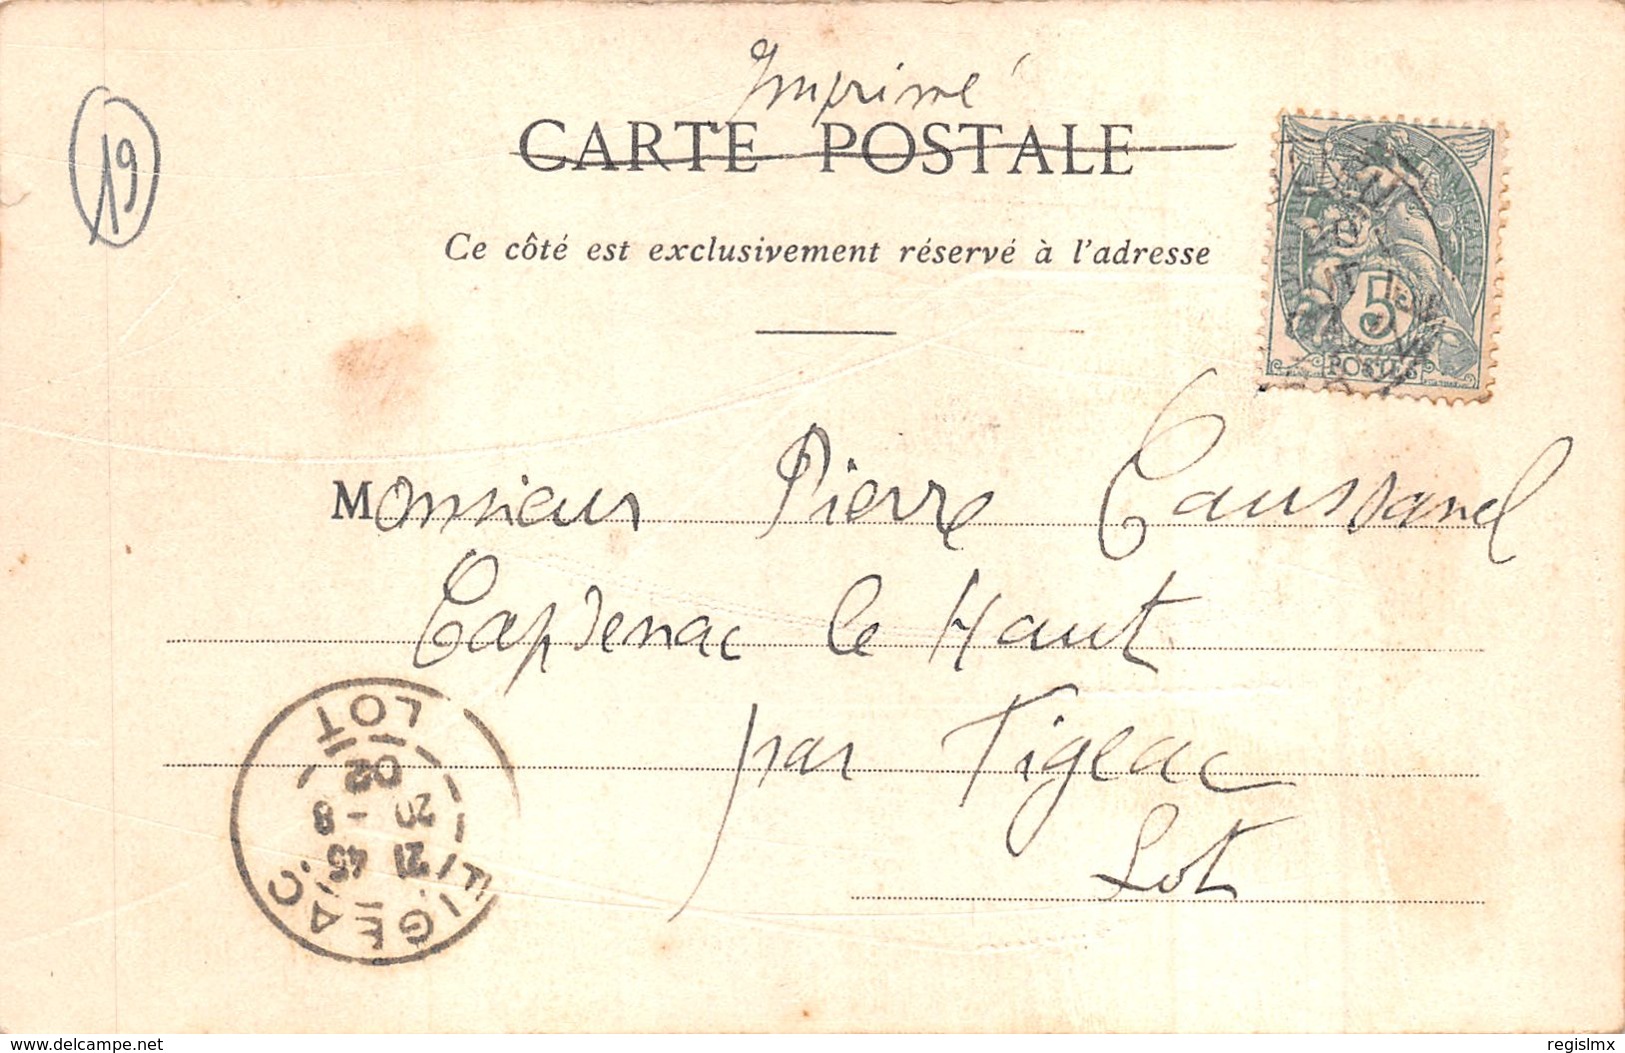 Imprimé
19
CARTE POSTALE
Ce côté est exclusivement réservé à l'adresse
5
POSTES
Monsieur Pierre Caussanel
Capdenac le Haut
par Figeac
Lot
FIGEAC
21 45
20 - 8
02
LOT
delcampe.net
regislmx